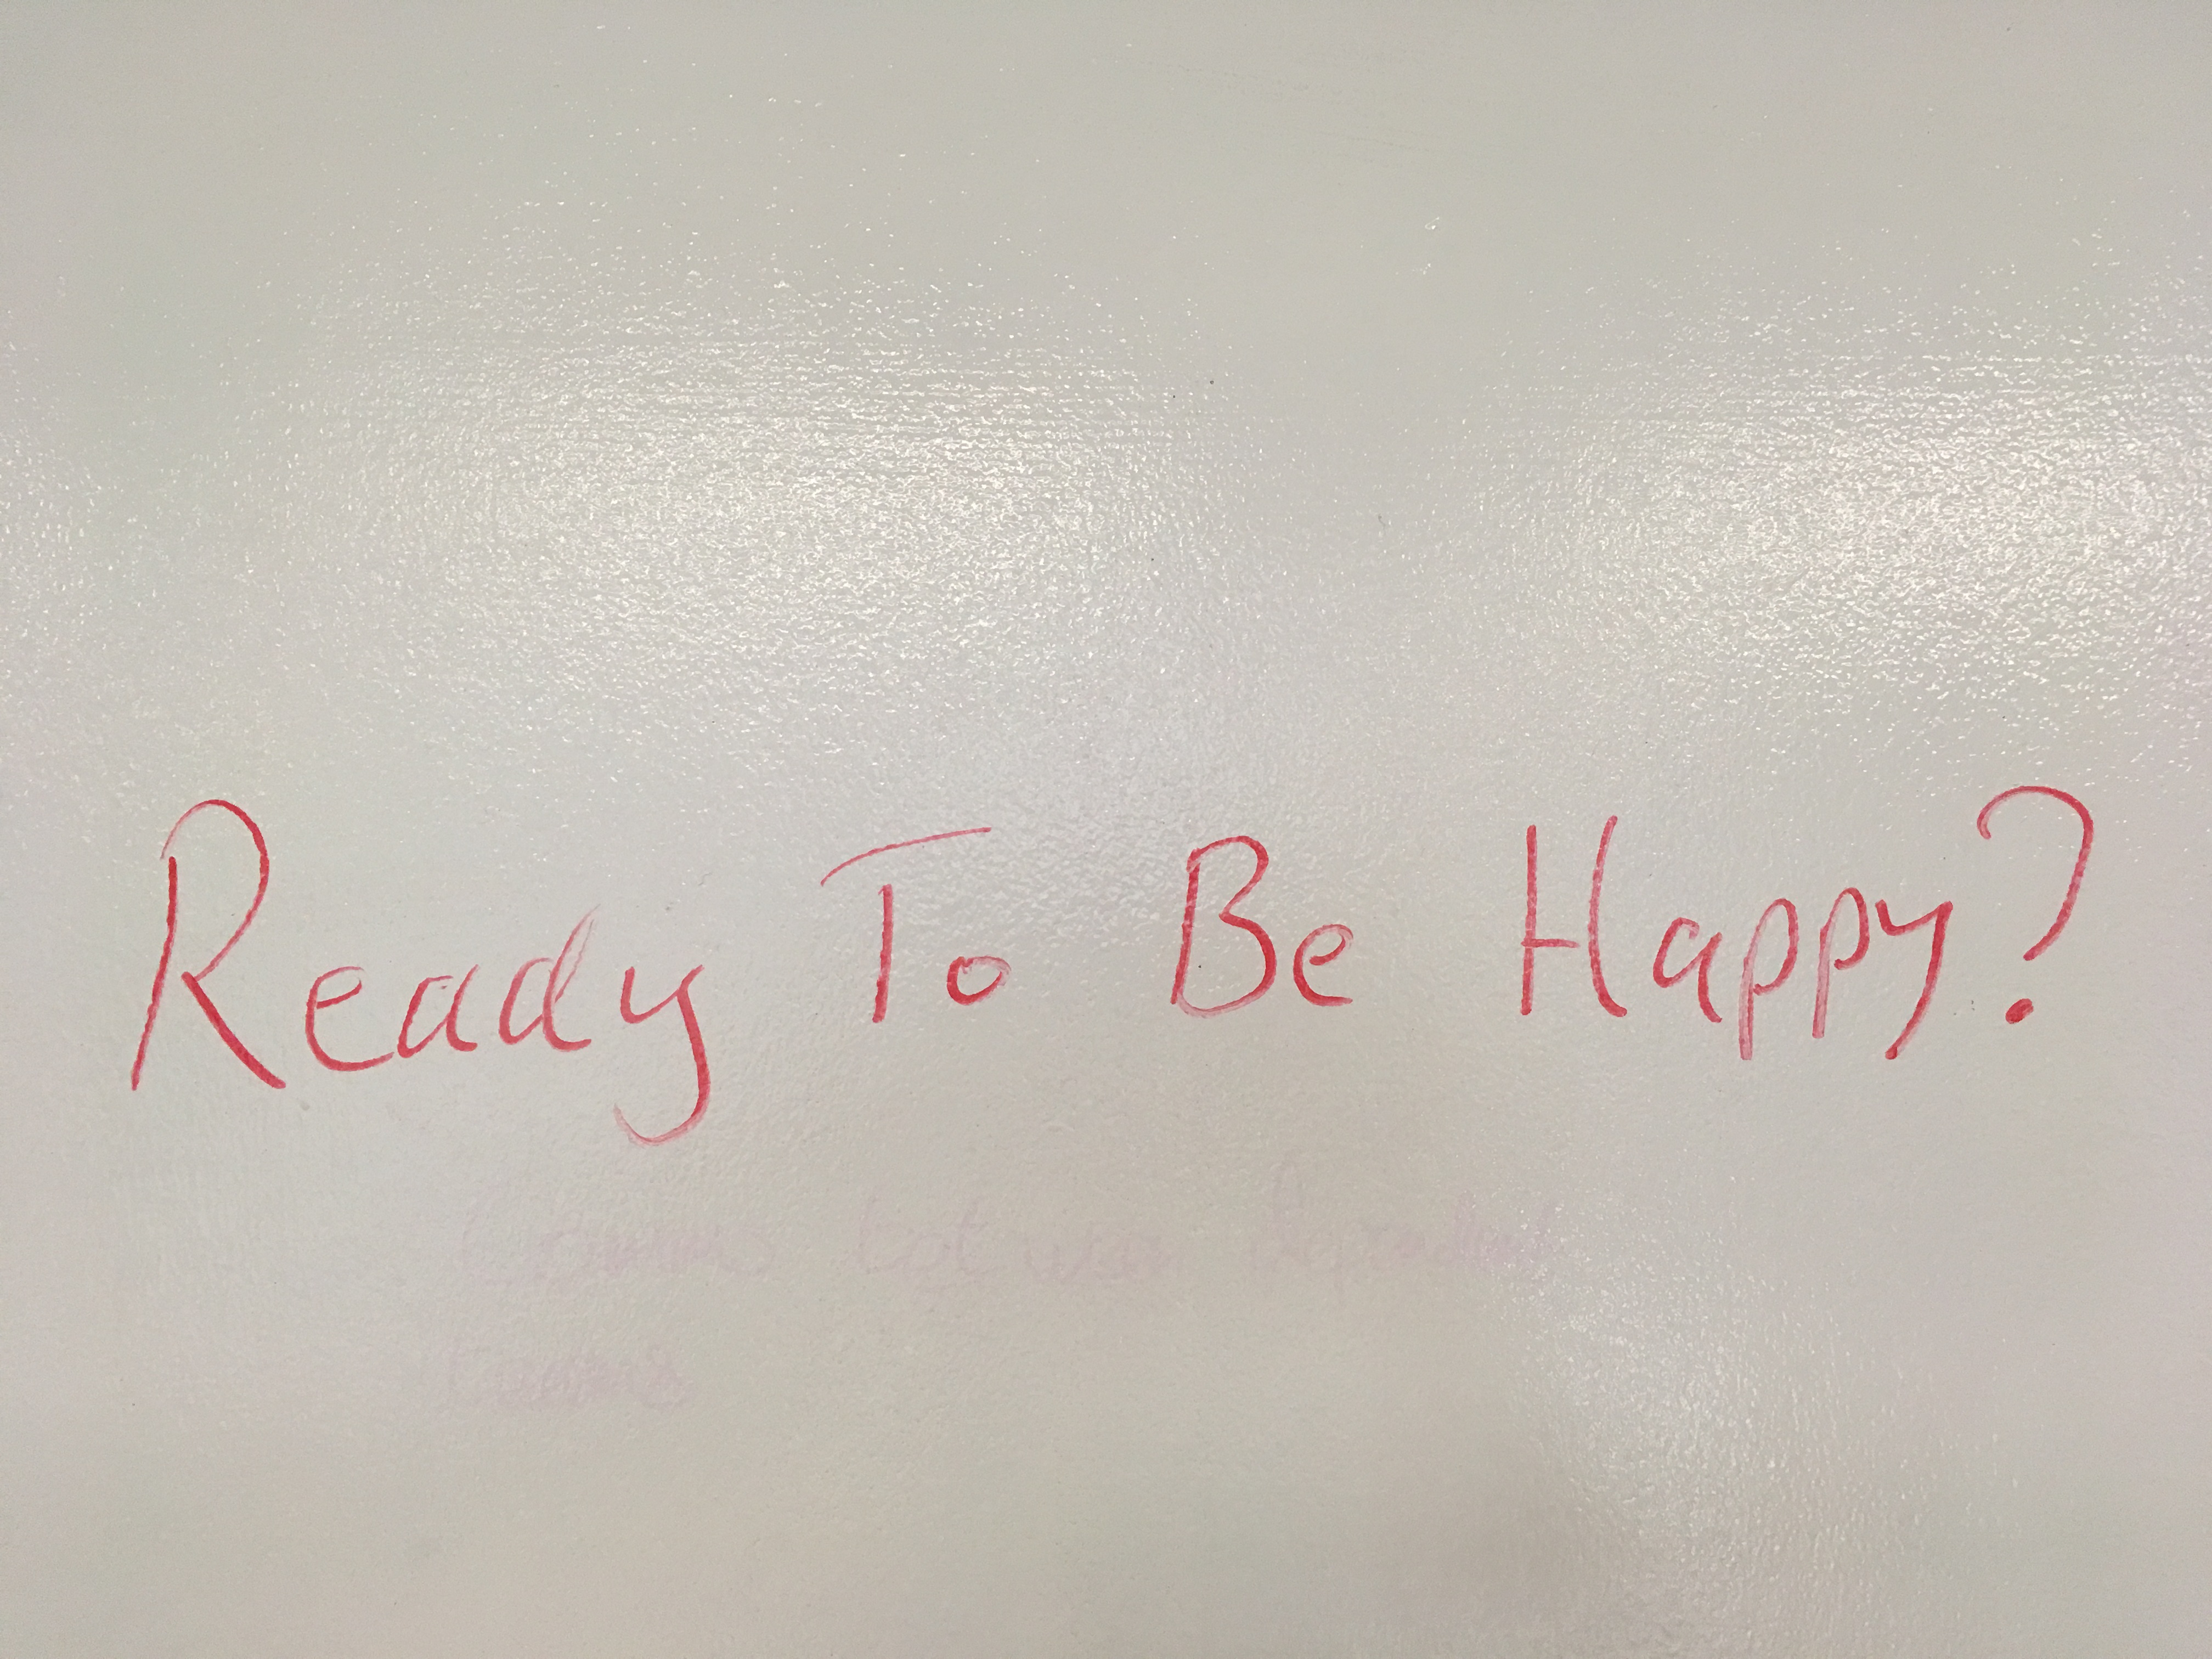 Ready To Be Happy?